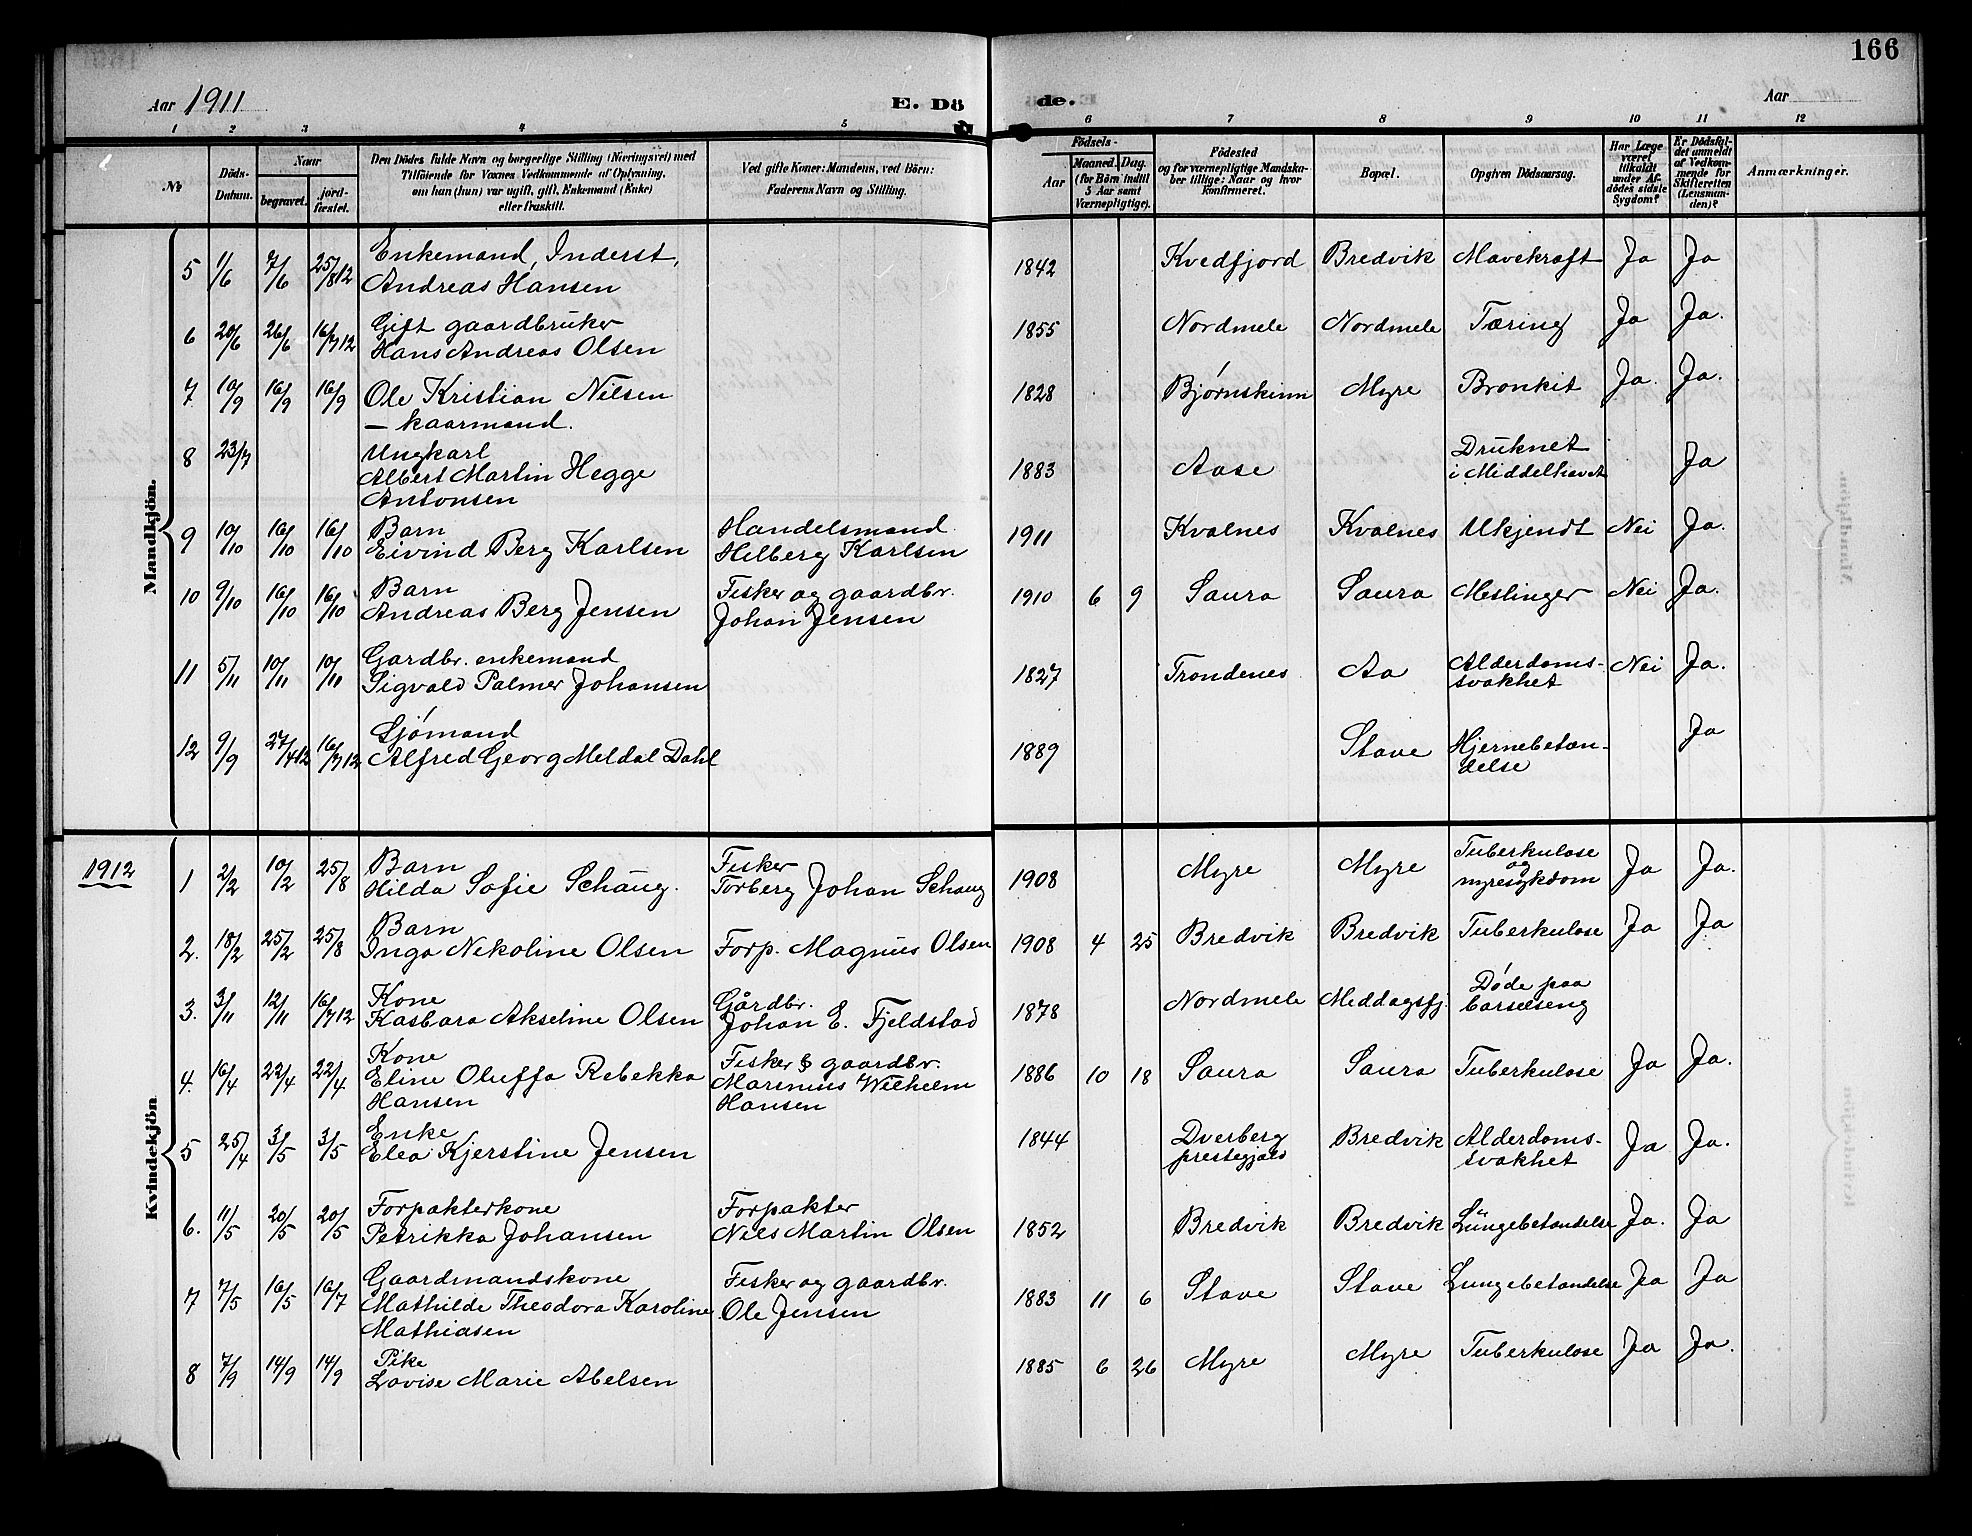 166
Aar 1911
E. Dö
de.
Aar
1 2 3 4 5 6 7 8 9 10 11 12
№
Döds-
Datum.
Naar
begravet.
jord-
fæstet.
Den Dödes fulde Navn og borgerlige Stilling (Næringsvei) med
Tilföiende for Voxnes Vedkommende af Oplysning,
om han (hun) var ugift, gift, Enkemand (Enke)
eller fraskilt.
Ved gifte Koner: Mandens, ved Börn:
Faderens Navn og Stilling.
Födsels-
Aar
Maaned. Dag.
(for Börn indtil
5 Aar samt
Værnepligtige).
Födested
og for værnepligtige Mandska-
ber tillige: Naar og hvor
konfirmeret.
Bopæl.
Opgiven Dödsaarsag.
Har Læge
været
tilkaldt
under Af-
dödes sidste
Sygdom?
Er Dödsfal-
det anmeldt
af Vedkom-
mende for
Skifteretten
(Lensman-
den)?
Anmærkninger.
Mandkjön.
5 11/6 7/6 25/8 12 Enkemand, Inderst, 1842 Kvedfjord Bredvik Mavekræft Ja Ja
Andreas Hansen
6 20/6 26/6 16/7 12 Gift gaardbruker 1855 Nordmele Nordmele Tæring Ja Ja.
Hans Andreas Olsen
7 10/9 16/9 16/9 Ole Kristian Nilsen 1828 Bjørnskinn Myre Bronkit Ja. Ja.
– kaarmand.
8 23/7 Ungkarl 1883 Aase Druknet Ja
Albert Martin Hegge i Middelhavet
Antonsen
9 10/10 16/10 16/10 Barn Handelsmand 1911 Kvalnes Kvalnes Ukjendt Nei Ja.
Eivind Berg Karlsen Hilberg Karlsen
10 9/10 16/10 16/10 Barn Fisker og gaardbr. 1910 6 9 Saura Saura Meslinger Nei Ja.
Andreas Berg Jensen Johan Jensen
11 5/11 10/11 10/11 Gardbr. enkemand 1827 Trondenes Aa Alderdoms- Nei Ja.
Sigvald Palmer Johansen svakhet
12 9/9 27/4 12 16/7 12 Sjømand 1889 Stave Hjernebetæn- Ja
Alfred Georg Meldal Dahl delse
1912
Kvindekjön
1 2/2 10/2 25/8 Barn Fisker 1908 Myre Myre Tuberkulose Ja Ja.
Hilda Sofie Schaug. Torberg Johan Schaug og
nyresykdom
2. 18/2 25/2 25/8 Barn 1908 4 25 Bredvik Bredvik Tuberkulose Ja Ja
Inga Nekoline Olsen Forp. Magnus Olsen
3. 3/11 12/11 16/7 12 Kone Gårdbr. 1878 Nordmele Meddagsfj. Døde paa
Kasbara Akseline Olsen Johan E. Fjeldstad barselseng
4. 16/4 22/4 22/4 Kone Fisker & gaardbr. 1886 10 18 Saura Saura Tuberkulose Ja Ja.
Eline Oluffa Rebekka Marenius Wilhelm
Hansen Hansen
5 25/4 3/5 3/5 Enke 1844 Dverberg Bredvik Alderdoms- Ja Ja.
Elea Kjerstine Jensen prestegjæld svakhet
6. 11/5 20/5 20/5 Forpakterkone Forpakter 1852 Bredvik Bredvik Lungebetændelse Ja. Ja
Petrikka Johansen Nils Martin Olsen
7 7/5 16/5 16/7 Gaardmandskone Fisker og gaardbr. 1883 11 6 Stave Stave Lungebetændelse Ja Ja
Mathilde Theodora Karoline Ole Jensen
Mathiasen
8 7/9 14/9 14/9 Pike 1885 6 26 Myre Myre Tuberkulose Ja Ja.
Lovise Marie Abelsen